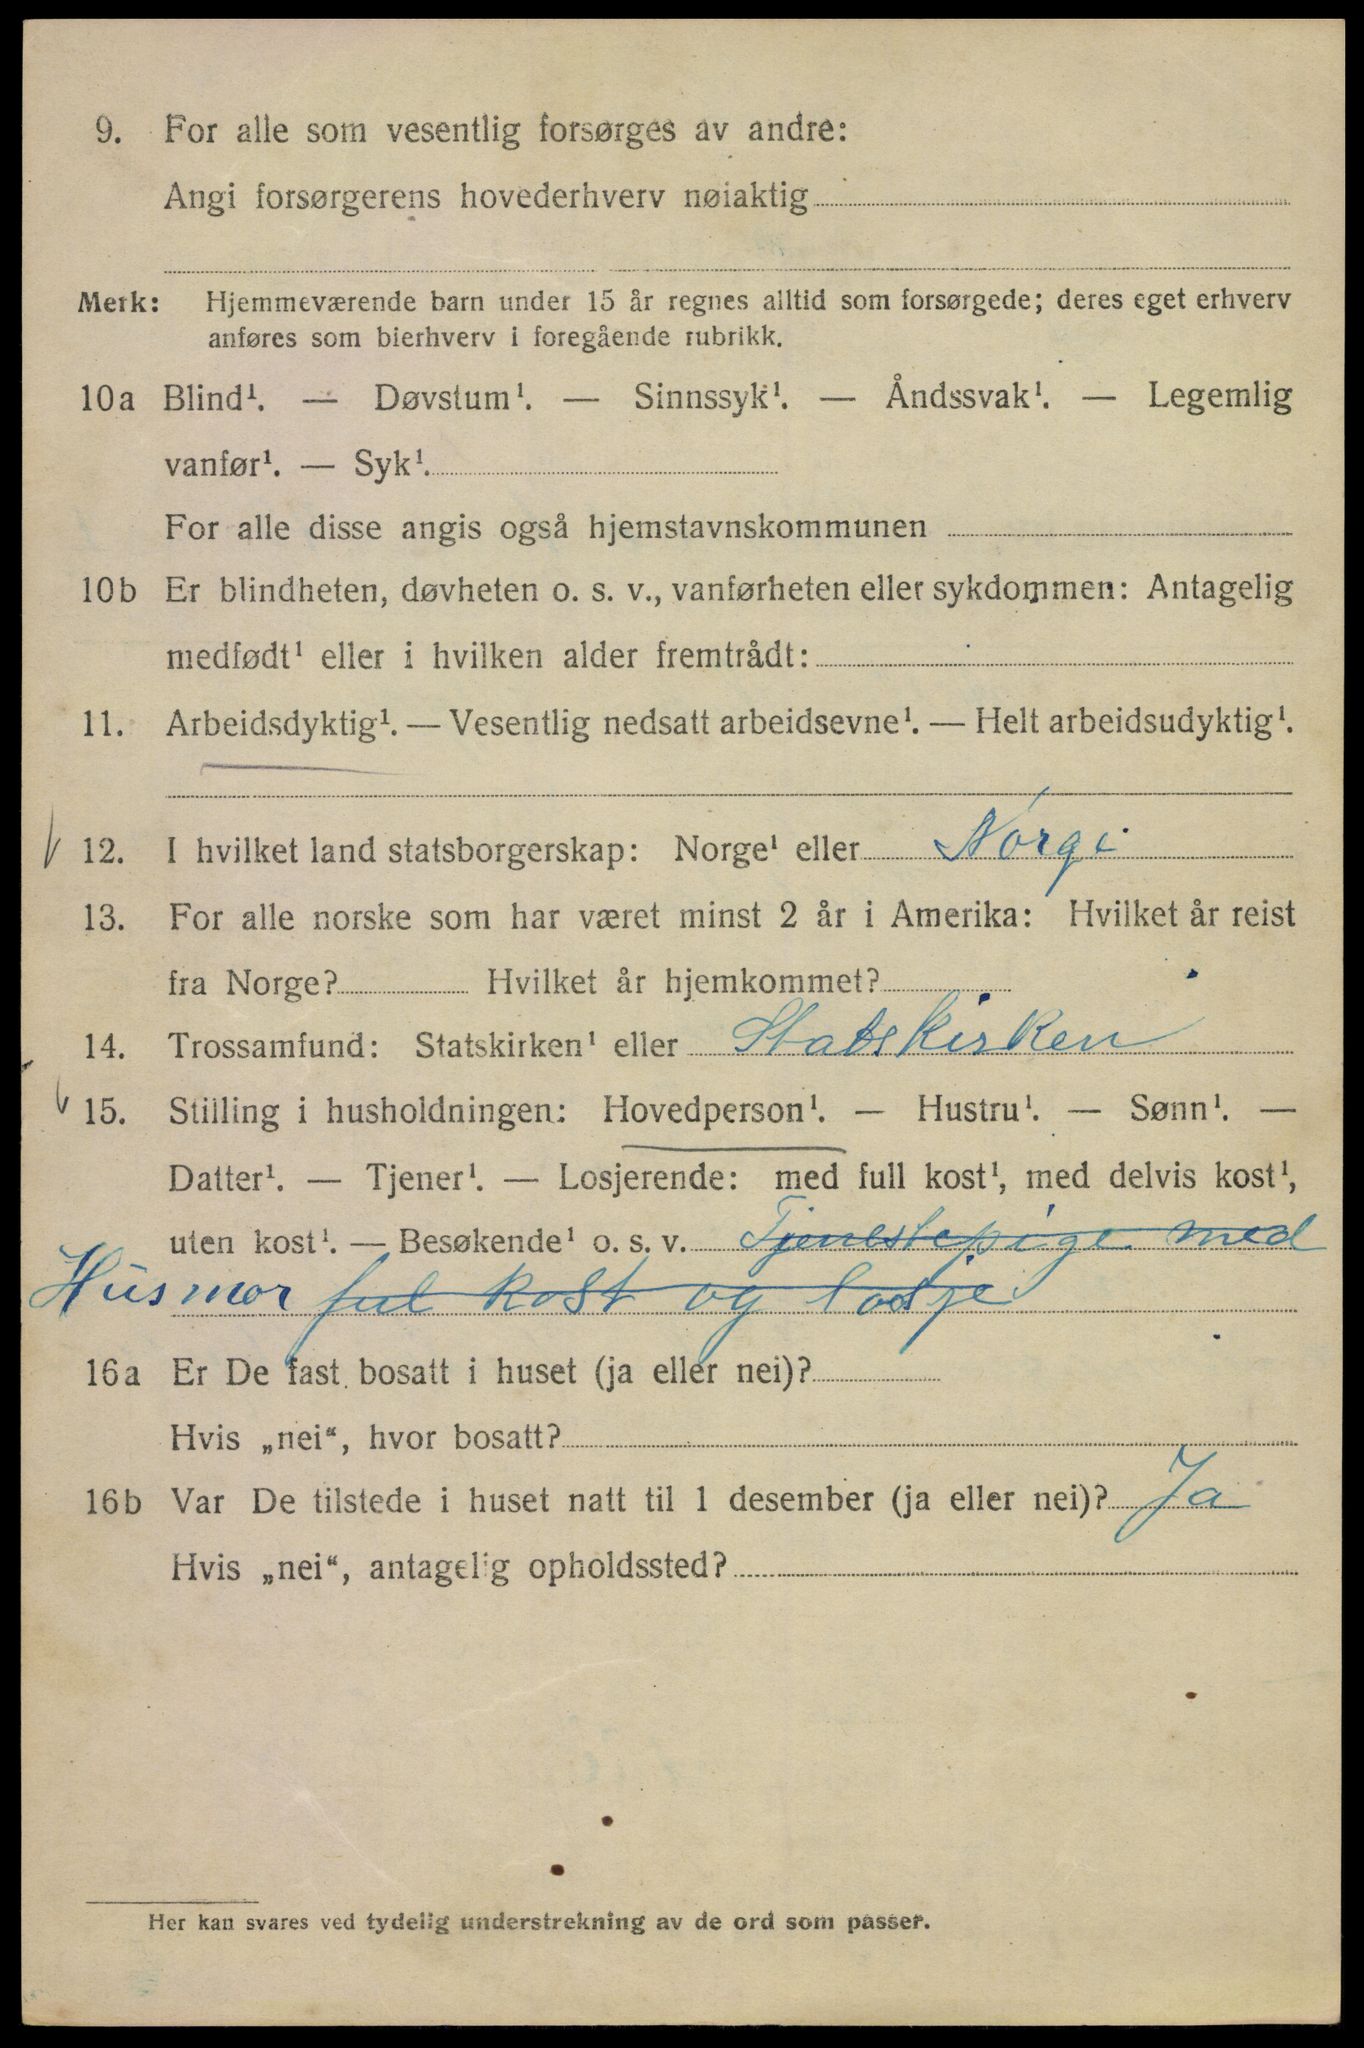 9. For alle som vesentlig forsørges av andre:
Angi forsørgerens hovederhverv nøiaktig
Merk: Hjemmeværende barn under 15 år regnes alltid som forsørgede; deres eget erhverv
anføres som bierhverv i foregående rubrikk.
10a Blind¹. — Døvstum¹. — Sinnssyk¹. — Åndssvak¹. — Legemlig
vanfør¹. — Syk¹.
For alle disse angis også hjemstavnskommunen
10b Er blindheten, døvheten o. s. v., vanførheten eller sykdommen: Antagelig
medfødt¹ eller i hvilken alder fremtrådt:
11. Arbeidsdyktig¹. — Vesentlig nedsatt arbeidsevne¹. — Helt arbeidsudyktig¹.
12. I hvilket land statsborgerskap: Norge¹ eller Norge
13. For alle norske som har været minst 2 år i Amerika: Hvilket år reist
fra Norge? Hvilket år hjemkommet?
14. Trossamfund: Statskirken¹ eller Statskirken
15. Stilling i husholdningen: Hovedperson¹. — Hustru¹. — Sønn¹. —
Datter¹. — Tjener¹. — Losjerende: med full kost¹, med delvis kost¹,
uten kost¹. — Besøkende¹ o. s. v. Tjenestepige med
Husmor ful kost og losje
16a Er De fast bosatt i huset (ja eller nei)?
Hvis „nei“, hvor bosatt?
16b Var De tilstede i huset natt til 1 desember (ja eller nei)? Ja
Hvis „nei“, antagelig opholdssted?
Her kan svares ved tydelig understrekning av de ord som passer.